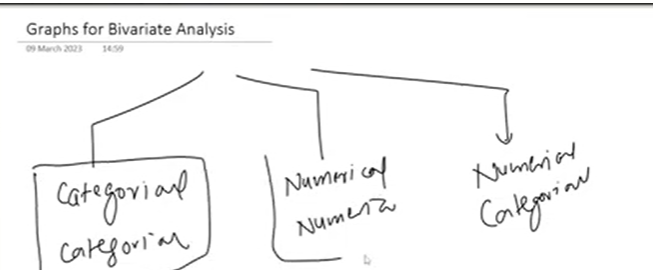 Graphs for Bivariate Analysis
09 March 2023 14:59
Categorial
Categorial
Numerical
Numerical
Categorial